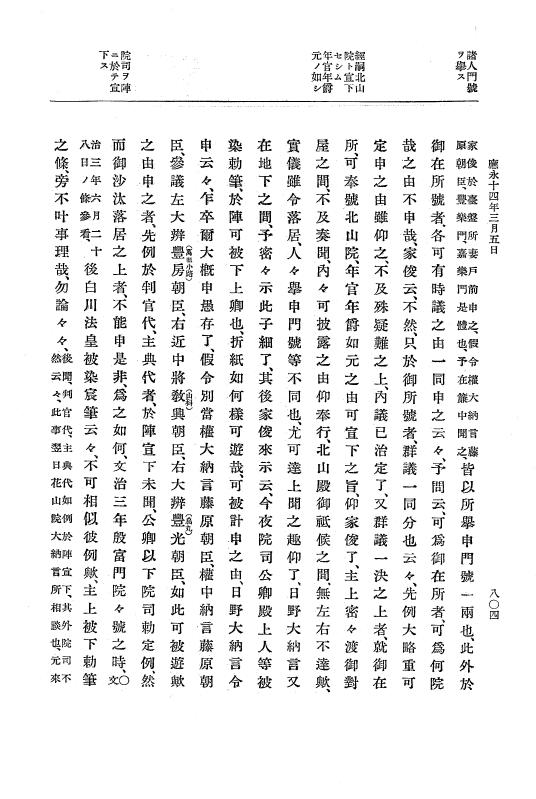 諸人門號
ヲ擧ス
經嗣北山
院ト宣下
セシム
年官年爵
元ノ如シ
院司ヲ陣
ニ於テ宣
下ス
應永十四年三月五日
八〇四
家俊於臺盤所妻戸前申之、假令權大納言藤
原朝臣、豐樂門、嘉樂門是體也、予在簾中聞之、皆以所擧申門號一兩也、此外於
御在所號者、各可有時議之由一同申之云々、予問云、可爲御在所者、可爲何院
哉之由不申哉、家俊云、不然、只於御所號者、群議一同分也云々、先例大略重可
定申之由雖仰之、不及殊疑難之上、內議已治定了、又群議一決之上者、就御在
所、可奉號北山院、年官年爵如元之由可宣下之旨、仰家俊了、主上密々渡御對
屋之間、不及奏聞、內々可披露之由仰奉行、北山殿御祗候之間、無左右不達歟、
實儀雖令落居、人々擧申門號等不同也、尤可達上聞之趣仰了、日野大納言又
在地下之間、予密々示此子細了、其後家俊來示云、今夜院司公卿殿上人等被
染勅筆、於陣可被下上卿也、折紙如何樣可遊哉、可被計申之由、日野大納言令
申云々、乍卒爾大槪申愚存了、假令別當權大納言藤原朝臣、權中納言藤原朝
臣、參議左大辨豐房朝臣、(萬里小路)右近中將敎興朝臣、(山科)右大辨豐光朝臣、(烏丸)如此可被遊歟
之由申之者、先例於判官代、主典代者、於陣宣下未聞、公卿以下院司勅定例、然
而御沙汰落居之上者、不能申是非、爲之如何、文治三年殷富門院々號之時、〇文
治三年六月二十
八日ノ條參看、後白川法皇被染宸筆云々、不可相似彼例歟、主上被下勅筆
之條、旁不叶事理哉、勿論々々、後聞、判官代、主典代如例於陣宣下、其外院司不
然云々、此事翌日花山院大納言所相談也、元來